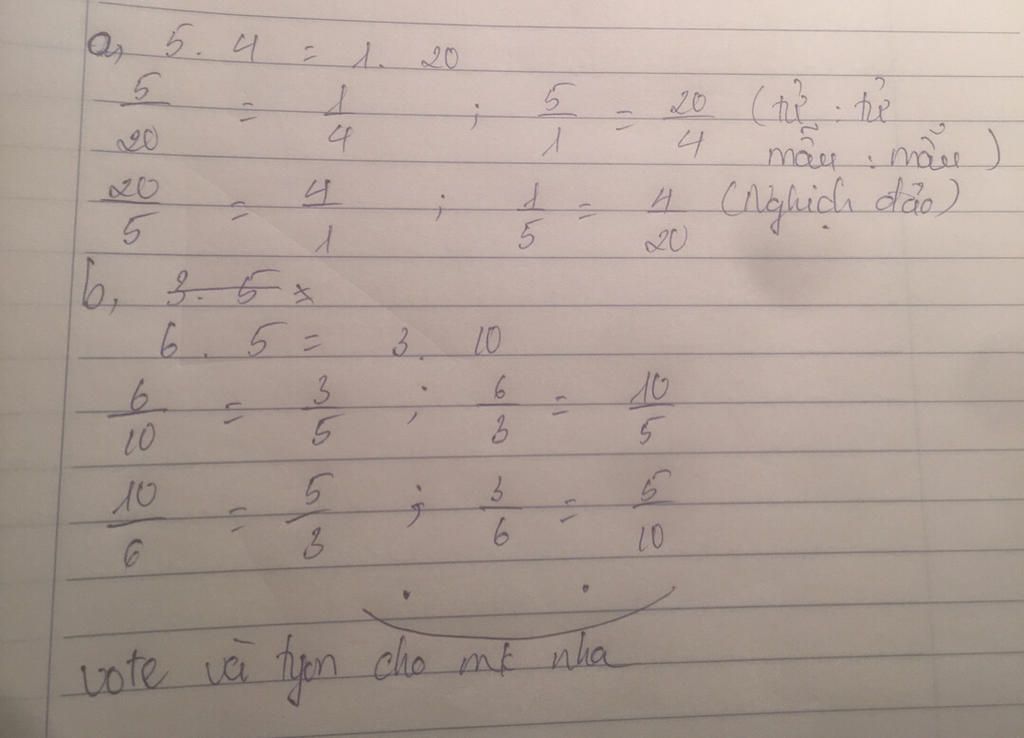 a, 5. 4 = 1. 20
5/20 = 1/4 ; 5/1 = 20/4 (tử : tử
mẫu : mẫu)
20/5 = 4/1 ; 1/5 = 4/20 (Nghịch đảo)
b, 3. 5 x
6 . 5 = 3. 10
6/10 = 3/5 ; 6/3 = 10/5
10/6 = 5/3 ; 3/6 = 5/10
vote và tym cho mk nha